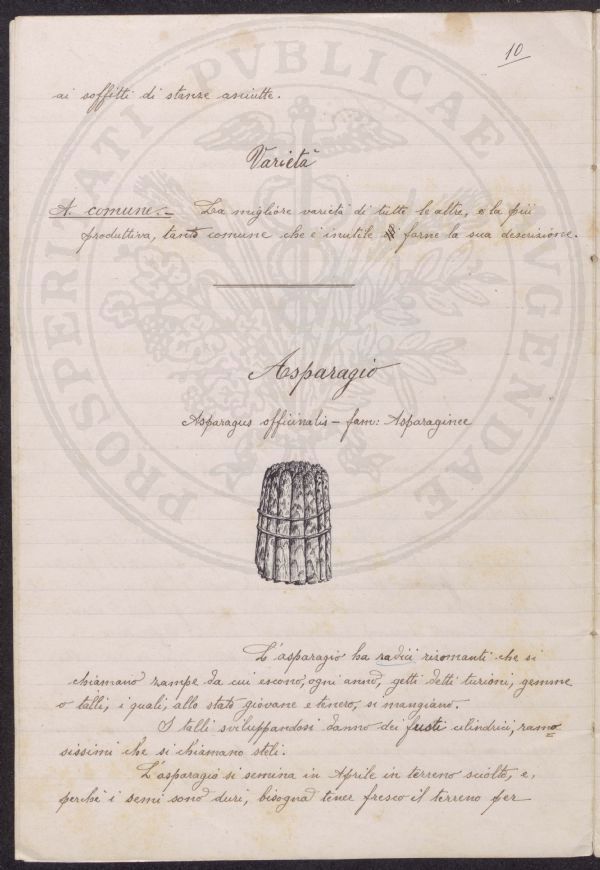 10
ai soffitti di stanze asciutte.
Varietà
A. comune. - La migliore varietà di tutte le altre, e la più
produttiva, tanto comune che è inutile farne la sua descrizione.
Asparagio
Asparagus officinalis - fam: Asparaginee
L'asparagio ha radici rizomanti che si
chiamano zampe da cui escono, ogni anno, getti detti turioni, gemme
o talli, i quali, allo stato giovane e tenero, si mangiano.
I talli sviluppandosi danno dei fusti cilindrici, ramo=
sissimi che si chiamano steli.
L'asparagio si semina in Aprile in terreno sciolto, e,
perchè i semi sono duri, bisogna tener fresco il terreno per
PROSPERITATI PVBLICAE AVGENDAE